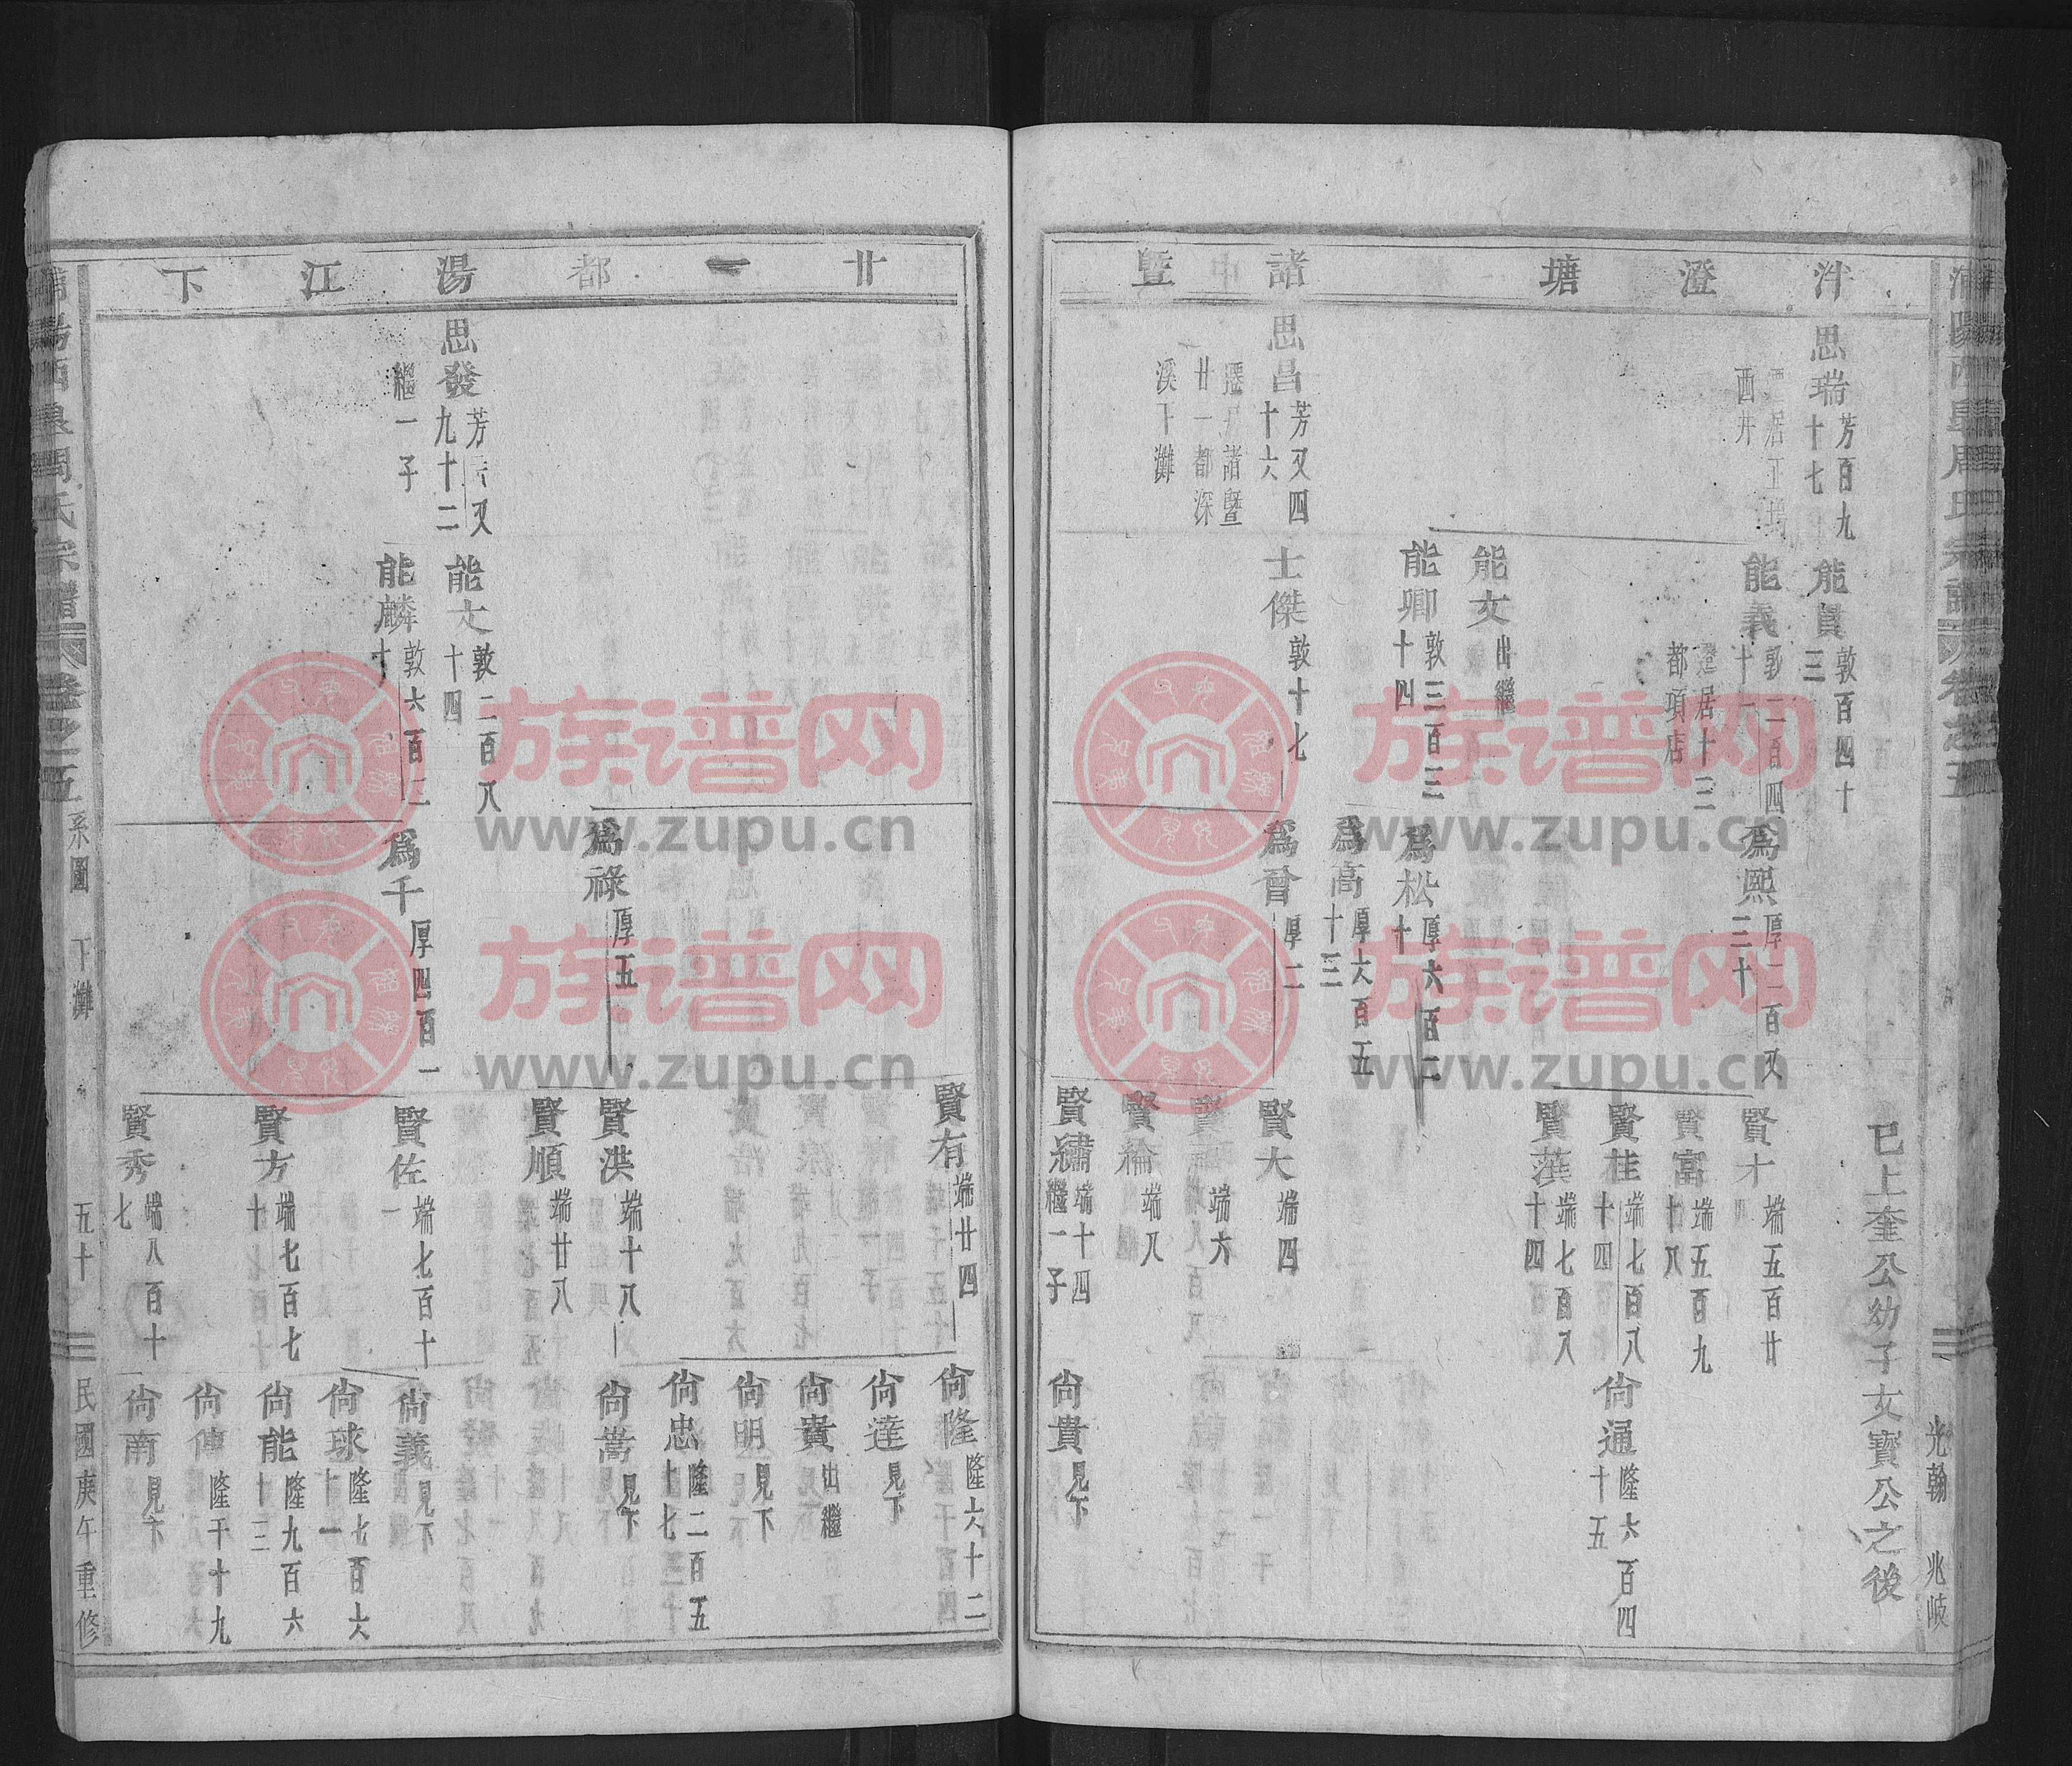 汫澄塘
諸暨
思瑞 芳百九十七
西井
思昌 芳又四十六
遷居諸暨廿一都深溪下灘
能貴 敦百四十三
能義 敦二百四十一
遷居十三都項店
能文 出繼
能卿 敦三百三十四
士傑 敦十七
爲熙 厚二百又三十
爲松 厚六百二十
爲高 厚六百五十三
爲會 厚二
已上奎公幼子女寶公之後
賢才 端五百廿四
賢富 端五百九十八
賢桂 端七百八十四
賢漢 端七百八十四
賢大 端四
端六
賢綸 端八
賢繡 端十四
繼一子
尙通 隆六百四十五
尙貴 見下
光翰 兆岐
浦陽西皐周氏宗譜 卷之五
廿一都湯江下
思發 芳又九十二
繼一子
能文 敦二百八十四
能麟 敦六百三十
爲祿 厚五
爲千 厚四百一
賢有 端廿四
賢洪 端十八
賢順 端廿八
賢佐 端七百十一
賢方 端七百七十
賢秀 端八百十七
尙隆 隆六十二
尙達 見下
尙貴 出繼
尙明 見下
尙忠 隆二百五十七
尙嵩 見下
尙義 見下
尙球 隆七百六十一
尙能 隆九百六十三
尙傳 隆千十九
尙南 見下
浦陽西皐周氏宗譜 卷之五 系圖 下灘 五十 民國庚午重修
族谱网
www.zupu.cn
族谱网
www.zupu.cn
族谱网
www.zupu.cn
族谱网
www.zupu.cn